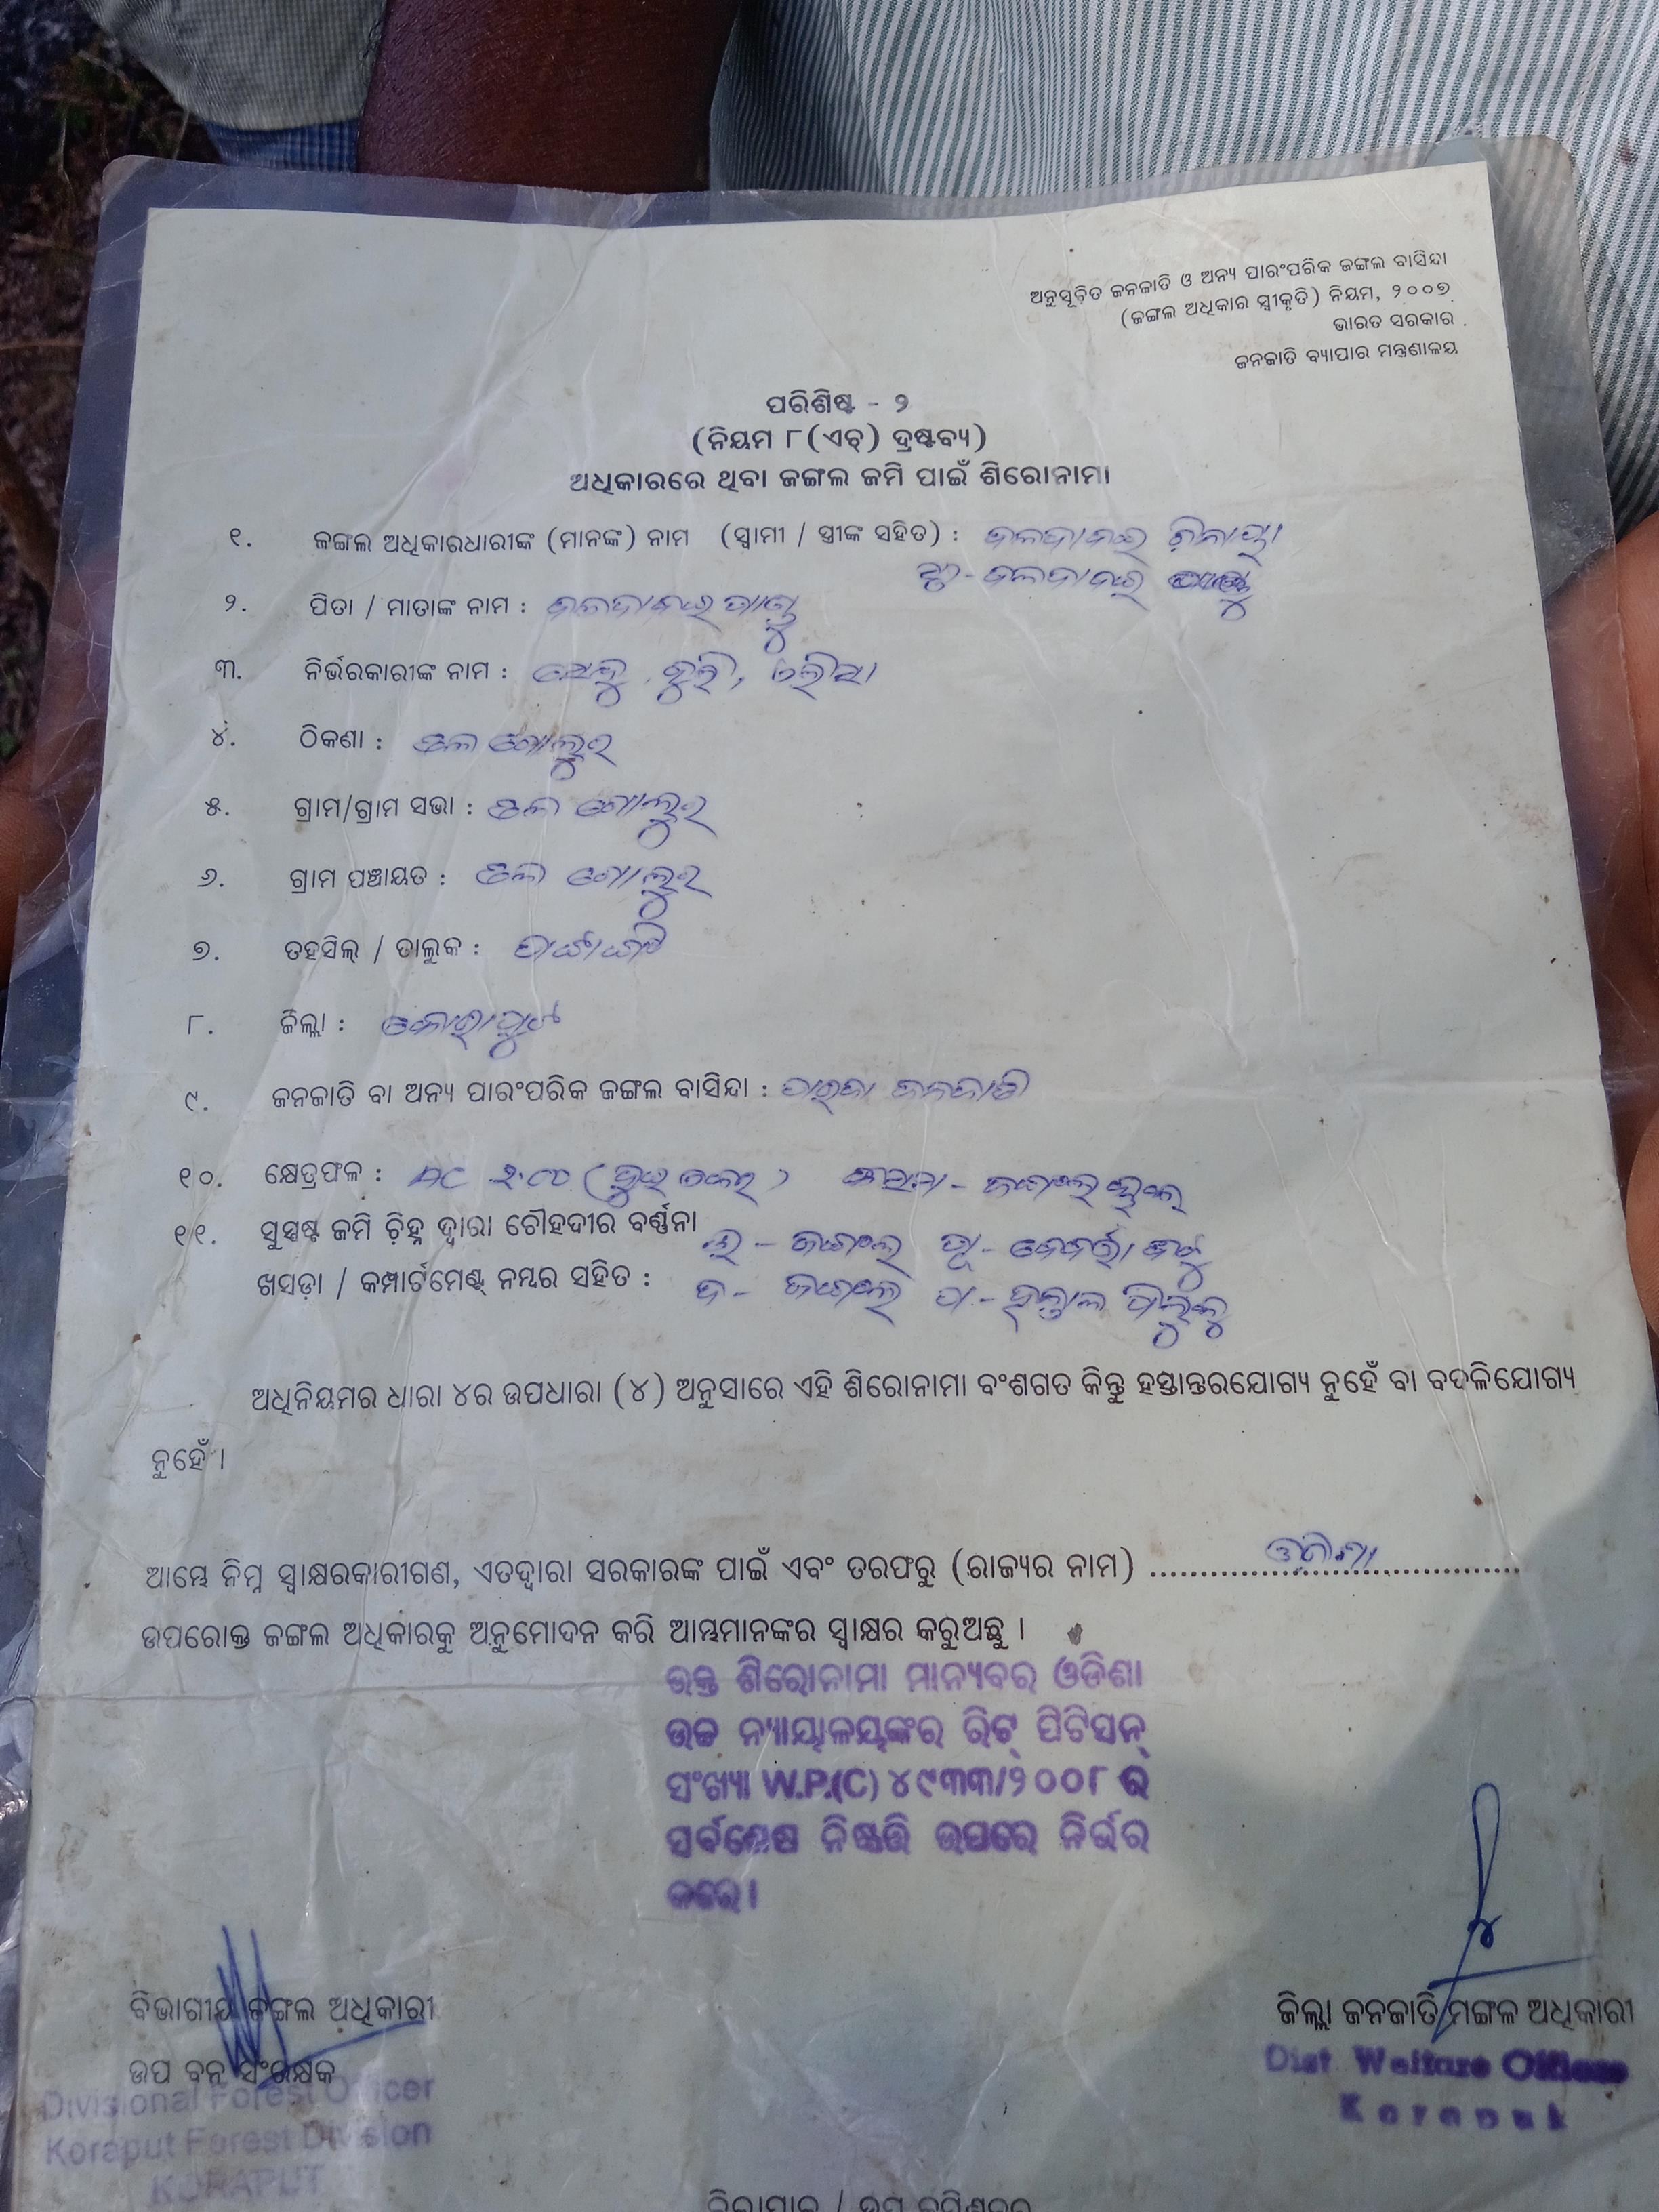 ଅନୁସୂଚିତ ଜନଜାତି ଓ ଅନ୍ୟ ପାରଂପରିକ ଜଙ୍ଗଲ ବାସିନ୍ଦା
(ଜଙ୍ଗଲ ଅଧିକାର ସ୍ୱୀକୃତି) ନିୟମ, ୨୦୦୭
ଭାରତ ସରକାର
ଜନଜାତି ବ୍ୟାପାର ମନ୍ତ୍ରଣାଳୟ
ପରିଶିଷ୍ଟ - ୨
(ନିୟମ ୮(ଏଚ୍) ଦ୍ରଷ୍ଟବ୍ୟ)
ଅଧିକାରରେ ଥିବା ଜଙ୍ଗଲ ଜମି ପାଇଁ ଶିରୋନାମା
୧. ଜଙ୍ଗଲ ଅଧିକାରଧାରୀଙ୍କ (ମାନଙ୍କ) ନାମ (ସ୍ୱାମୀ / ସ୍ତ୍ରୀଙ୍କ ସହିତ) :
୨. ପିତା / ମାତାଙ୍କ ନାମ :
୩. ନିର୍ଭରକାରୀଙ୍କ ନାମ :
୪. ଠିକଣା : ତଳ ଗୋଲୁର
୫. ଗ୍ରାମ/ଗ୍ରାମ ସଭା : ତଳ ଗୋଲୁର
୬. ଗ୍ରାମ ପଞ୍ଚାୟତ : ତଳ ଗୋଲୁର
୭. ତହସିଲ୍ / ତାଲୁକ :
୮. ଜିଲ୍ଲା : କୋରାପୁଟ
୯. ଜନଜାତି ବା ଅନ୍ୟ ପାରଂପରିକ ଜଙ୍ଗଲ ବାସିନ୍ଦା : ପାରଜା ଜନଜାତି
୧୦. କ୍ଷେତ୍ରଫଳ : AC ୨.୦୦ (ଦୁଇ ଏକର)
୧୧. ସୁସ୍ପଷ୍ଟ ଜମି ଚିହ୍ନ ଦ୍ୱାରା ଚୌହଦୀର ବର୍ଣ୍ଣନା ଉ - ଜଙ୍ଗଲ ପୂ -
ଖସଡ଼ା / କମ୍ପାର୍ଟମେଣ୍ଟ୍ ନମ୍ବର ସହିତ : ଦ - ଜଙ୍ଗଲ ପ -
ଅଧିନିୟମର ଧାରା ୪ର ଉପଧାରା (୪) ଅନୁସାରେ ଏହି ଶିରୋନାମା ବଂଶଗତ କିନ୍ତୁ ହସ୍ତାନ୍ତରଯୋଗ୍ୟ ନୁହେଁ ବା ବଦଳିଯୋଗ୍ୟ
ନୁହେଁ ।
ଆମ୍ଭେ ନିମ୍ନ ସ୍ୱାକ୍ଷରକାରୀଗଣ, ଏତଦ୍ୱାରା ସରକାରଙ୍କ ପାଇଁ ଏବଂ ତରଫରୁ (ରାଜ୍ୟର ନାମ) ...... ଓଡିଶା ......
ଉପରୋକ୍ତ ଜଙ୍ଗଲ ଅଧିକାରକୁ ଅନୁମୋଦନ କରି ଆମ୍ଭମାନଙ୍କର ସ୍ୱାକ୍ଷର କରୁଅଛୁ ।
ଉକ୍ତ ଶିରୋନାମା ମାନ୍ୟବର ଓଡିଶା
ଉଚ୍ଚ ନ୍ୟାୟାଳୟଙ୍କର ରିଟ୍ ପିଟିସନ୍
ସଂଖ୍ୟା W.P.(C) ୪୯୩୩/୨୦୦୮ ର
ସର୍ବଶେଷ ନିଷ୍ପତ୍ତି ଉପରେ ନିର୍ଭର
କରେ ।
ବିଭାଗୀୟ ଜଙ୍ଗଲ ଅଧିକାରୀ
ଉପ ବନ ସଂରକ୍ଷକ
Divisional Forest Officer
Koraput Forest Division
KORAPUT
ଜିଲ୍ଲା ଜନଜାତି ମଙ୍ଗଳ ଅଧିକାରୀ
Dist Welfare Officer
Koraput
ଜିଲାପାଳ / ଉପ କମିଶନର